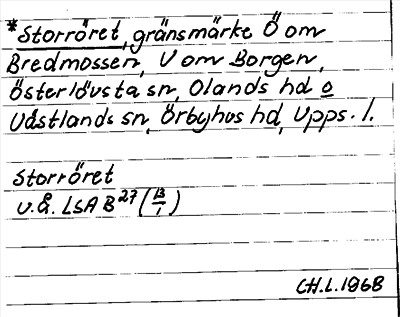 *Storröret, gränsmärke Ö om
Bredmossen, V om Borgen,
Österlövsta sn, Olands hd o
Våstlands sn, Örbyhus hd, Upps. l.
Storröret
u.å. LSA B27 (B/1)
CH.L.1968